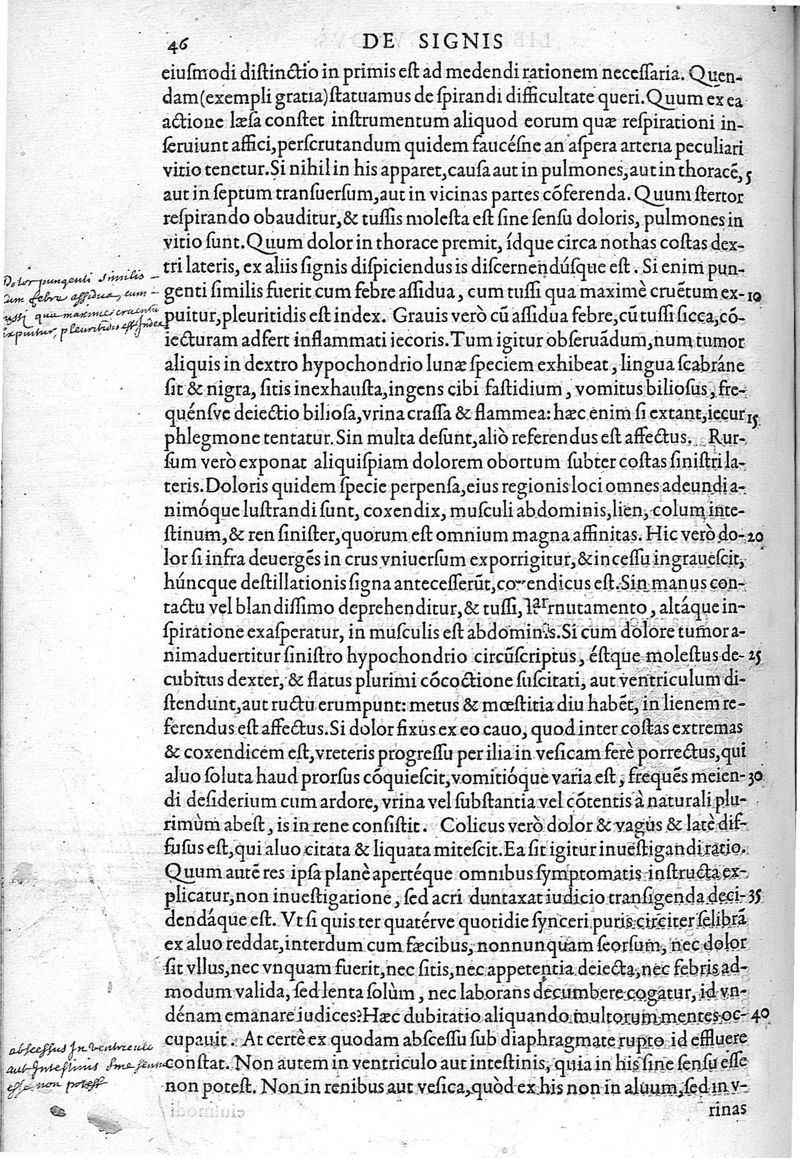 46
DE SIGNIS
eiusmodi distinctio in primis est ad medendi rationem necessaria. Quen-
dam (exempli gratia) statuamus de spirandi difficultate queri. Quum ex ea
actione læsa constet instrumentum aliquod eorum quæ respirationi in-
seruiunt affici, perscrutandum quidem faucésne an aspera arteria peculiari
vitio tenetur. Si nihil in his apparet, causa aut in pulmones, aut in thoracẽ, 5
aut in septum transuersum, aut in vicinas partes cõferenda. Quum stertor
respirando obauditur, & tussis molesta est sine sensu doloris, pulmones in
vitio sunt. Quum dolor in thorace premit, ídque circa nothas costas dex-
tri lateris, ex aliis signis dispiciendus is discernendúsque est. Si enim pun-
genti similis fuerit cum febre assidua, cum tussi qua maximè cruẽtum ex- 10
puitur, pleuritidis est index. Grauis verò cũ assidua febre, cũ tussi sicca, cõ-
iecturam adfert inflammati iecoris. Tum igitur obseruãdum, num tumor
aliquis in dextro hypochondrio lunæ speciem exhibeat, lingua scabráne
sit & nigra, sitis inexhausta, ingens cibi fastidium, vomitus biliosus, fre-
quénsve deiectio biliosa, vrina crassa & flammea: hæc enim si extant, iecur 15
phlegmone tentatur. Sin multa desunt, aliò referendus est affectus. Rur-
sum verò exponat aliquispiam dolorem obortum subter costas sinistri la-
teris. Doloris quidem specie perpensa, eius regionis loci omnes adeundi a-
nimóque lustrandi sunt, coxendix, musculi abdominis, lien, colum inte-
stinum, & ren sinister, quorum est omnium magna affinitas. Hic verò do- 20
lor si infra deuergẽs in crus vniuersum exporrigitur, & incessu ingrauescit,
húncque destillationis signa antecesserũt, coxendicus est. Sin manus con-
tactu vel blandissimo deprehenditur, & tussi, rnutamento, altáque in-
spiratione exasperatur, in musculis est abdominis. Si cum dolore tumor a-
nimaduertitur sinistro hypochondrio circũscriptus, éstque molestus de- 25
cubitus dexter, & flatus plurimi cõcoctione suscitati, aut ventriculum di-
stendunt, aut ructu erumpunt: metus & mœstitia diu habẽt, in lienem re-
ferendus est affectus. Si dolor fixus ex eo cauo, quod inter costas extremas
& coxendicem est, vreteris progressu per ilia in vesicam ferè porrectus, qui
aluo soluta haud prorsus cõquiescit, vomitióque varia est, frequẽs meien- 30
di desiderium cum ardore, vrina vel substantia vel cõtentis à naturali plu-
rimùm abest, is in rene consistit. Colicus verò dolor & vagus & latè dif-
fusus est, qui aluo citata & liquata mitescit. Ea sit igitur inuestigandi ratio.
Quum autẽ res ipsa planè apertéque omnibus symptomatis instructa ex-
plicatur, non inuestigatione, sed acri duntaxat iudicio transigenda deci- 35
dendáque est. Vt si quis ter quatérve quotidie synceri puris circiter selibrã
ex aluo reddat, interdum cum fæcibus, nonnunquam seorsum, nec dolor
sit vllus, nec vnquam fuerit, nec sitis, nec appetentia deiecta, nec febris ad-
modum valida, sed lenta solùm, nec laborans decumbere cogatur, id vn-
dénam emanare iudices? Hæc dubitatio aliquando multorum mentes oc- 40
cupauit. At certè ex quodam abscessu sub diaphragmate rupto id effluere
constat. Non autem in ventriculo aut intestinis, quia in his sine sensu esse
non potest. Non in renibus aut vesica, quòd ex his non in aluum, sed in v-
rinas
Dolor pungenti similis
cum febre assidua, cum
tussi qua maxime cruentũ
expuitur, pleuritidis est Index
abscessus In ventriculo
aut Intestinis sine sensu
esse non potest